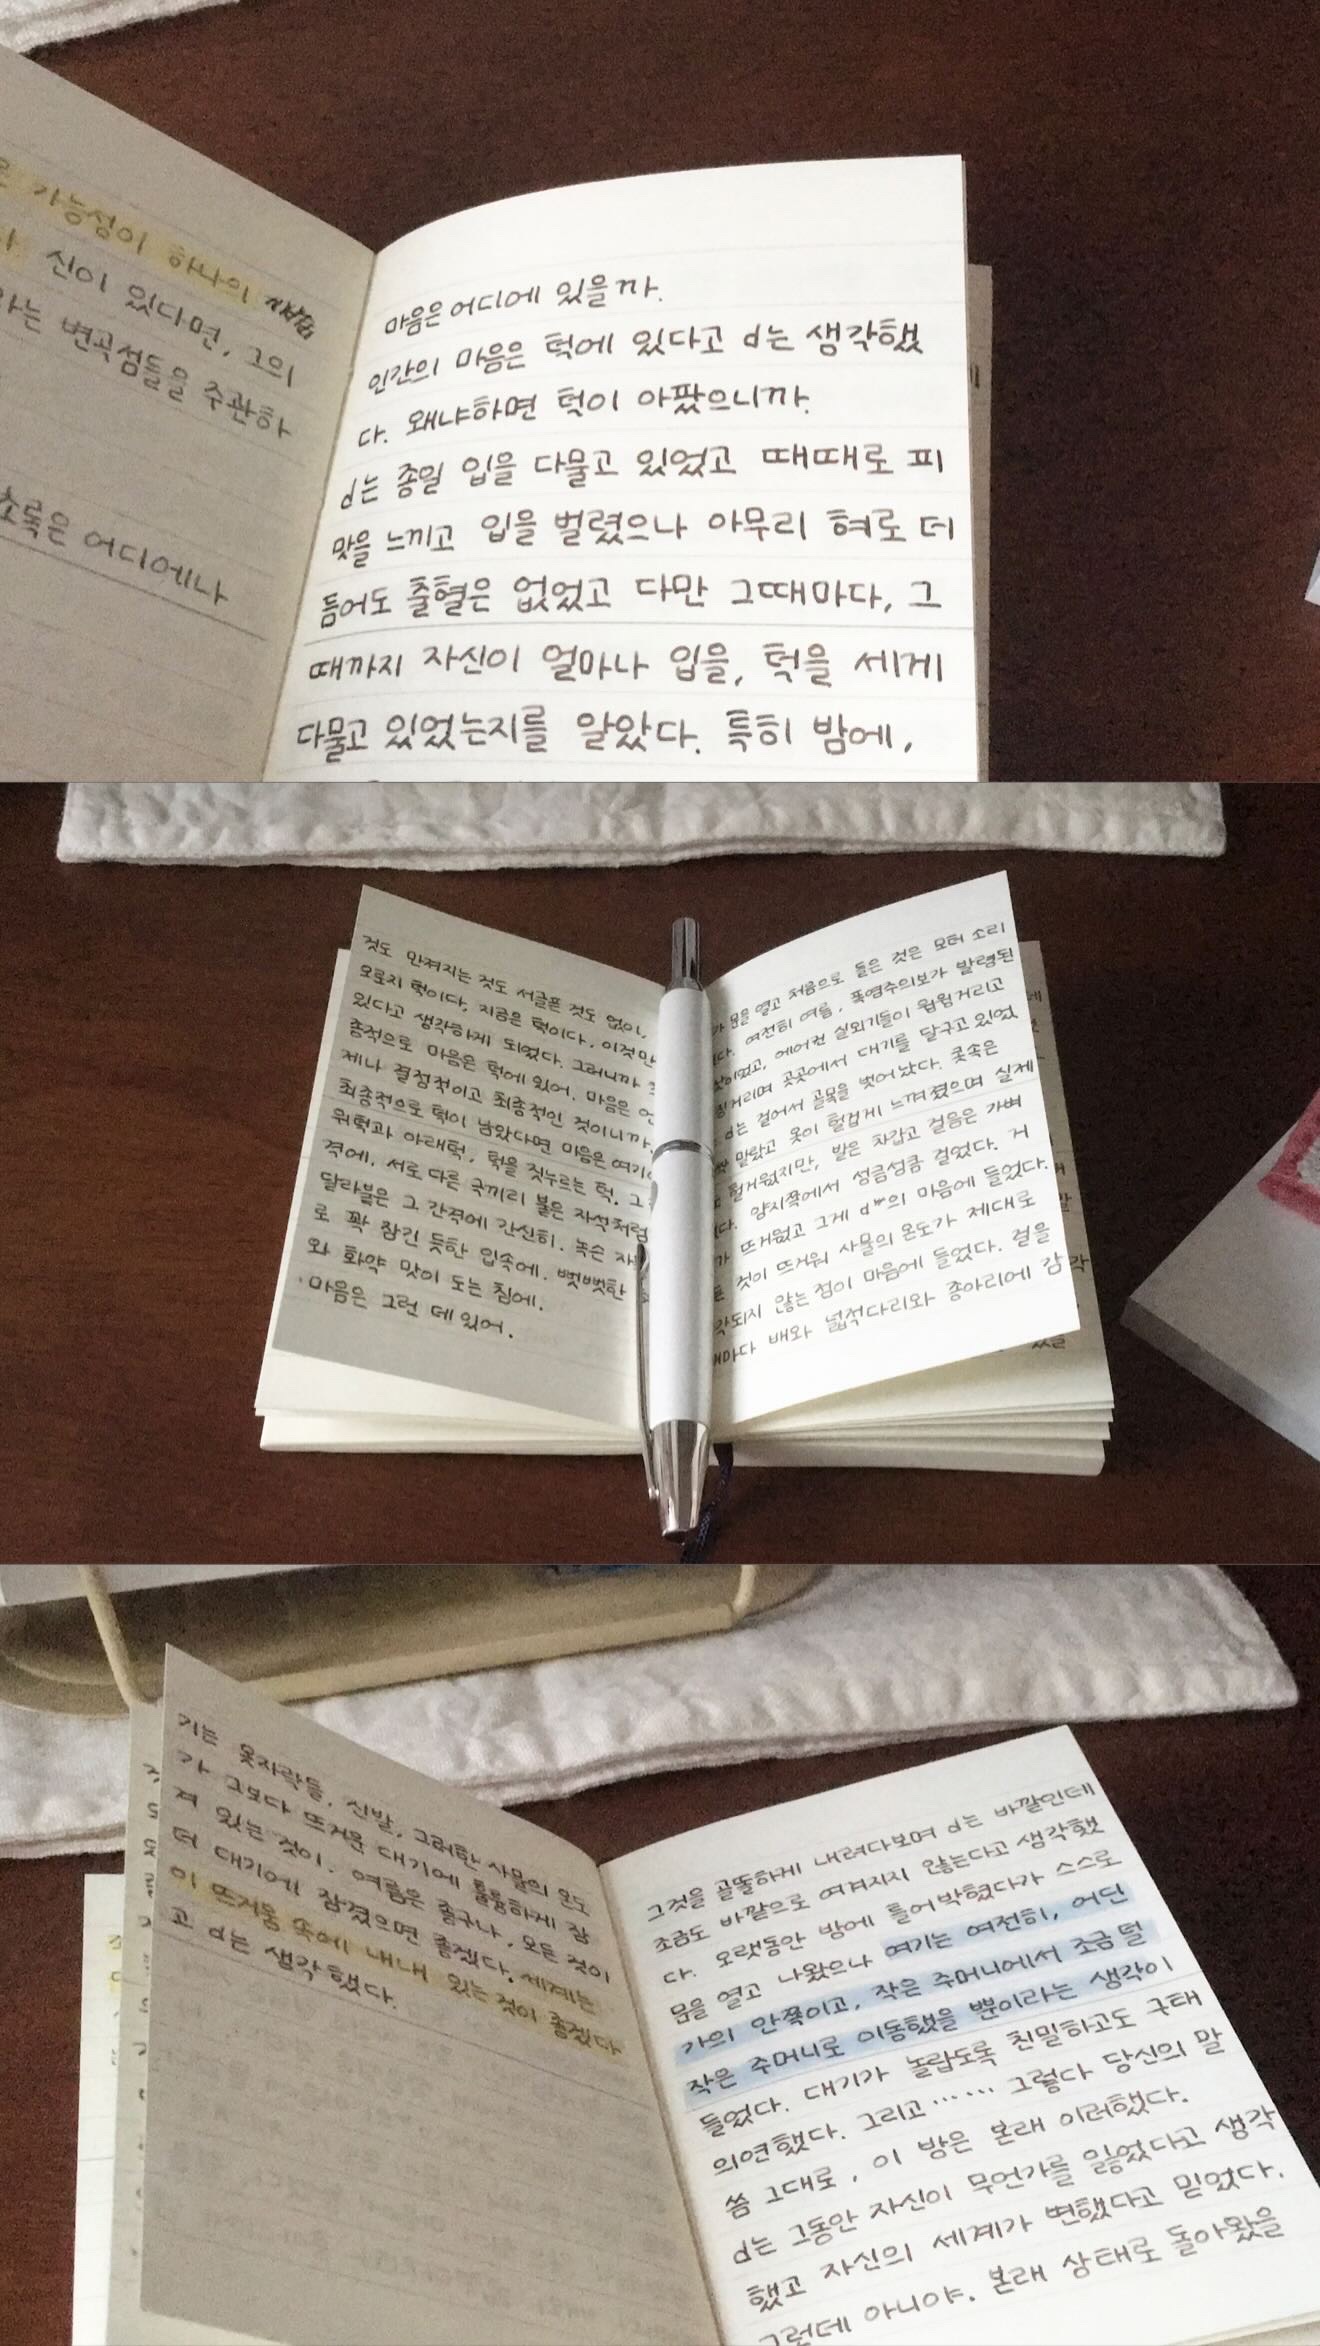 가능성이 하나의
신이 있다면, 그의
는 변곡점들을 주관하
어디에나
마음은 어디에 있을까.
인간의 마음은 턱에 있다고 d는 생각했
다. 왜냐하면 턱이 아팠으니까.
d는 종일 입을 다물고 있었고 때때로 피
맛을 느끼고 입을 벌렸으나 아무리 혀로 더
듬어도 출혈은 없었고 다만 그때마다, 그
때까지 자신이 얼마나 입을, 턱을 세게
다물고 있었는지를 알았다. 특히 밤에,
것도 만져지는 것도 서글픈 것도 없이,
오로지 턱이다, 지금은 턱이다. 이것만
있다고 생각하게 되었다. 그러니까
종적으로 마음은 턱에 있어. 마음은
제나 결정적이고 최종적인 것이니까.
최종적으로 턱이 남았다면 마음은 여기
위턱과 아래턱, 턱을 짓누르는 턱. 그
격에. 서로 다른 극끼리 붙은 자석처럼
달라붙은 그 간격에 간신히. 녹슨
로 꽉 잠긴 듯한 입속에. 뻣뻣한
와 화약 맛이 도는 침에.
마음은 그런 데 있어.
문을 열고 처음으로 들은 것은 모터 소리
다. 여전히 여름, 폭염주의보가 발령된
낮이었고, 에어컨 실외기들이 웅웅거리고
거리며 곳곳에서 대기를 달구고 있었
d는 걸어서 골목을 벗어났다. 콧속은
말랐고 옷이 헐겁게 느껴졌으며 실제
헐거웠지만, 발은 차갑고 걸음은 가벼
다. 양지쪽에서 성큼성큼 걸었다. 거
가 뜨거웠고 그게 d의 마음에 들었다.
것이 뜨거워 사물의 온도가 제대로
각되지 않는 점이 마음에 들었다. 걸을
때마다 배와 넓적다리와 종아리에 감
기는 옷자락들, 신발, 그러한 사물의 온도
가 그보다 뜨거운 대기에 풍훙하게 잠
겨 있는 것이. 여름은 좋구나, 모든 것이
더 대기에 잠겼으면 좋겠다. 세계는
이 뜨거움 속에 내내 있는 것이 좋겠다
고 d는 생각했다.
그것을 골똘하게 내려다보며 d는 바깥인데
조금도 바깥으로 여겨지지 않는다고 생각했
다. 오랫동안 방에 틀어박혔다가 스스로
문을 열고 나왔으나 여기는 여전히, 어딘
가의 안쪽이고, 작은 주머니에서 조금 덜
작은 주머니로 이동했을 뿐이라는 생각이
들었다. 대기가 놀랍도록 친밀하고도 구태
의연했다. 그리고…… 그렇다 당신의 말
씀 그대로, 이 방은 본래 이러했다.
d는 그동안 자신이 무언가를 잃었다고 생각
했고 자신의 세계가 변했다고 믿었다.
그런데 아니야. 본래 상태로 돌아왔을